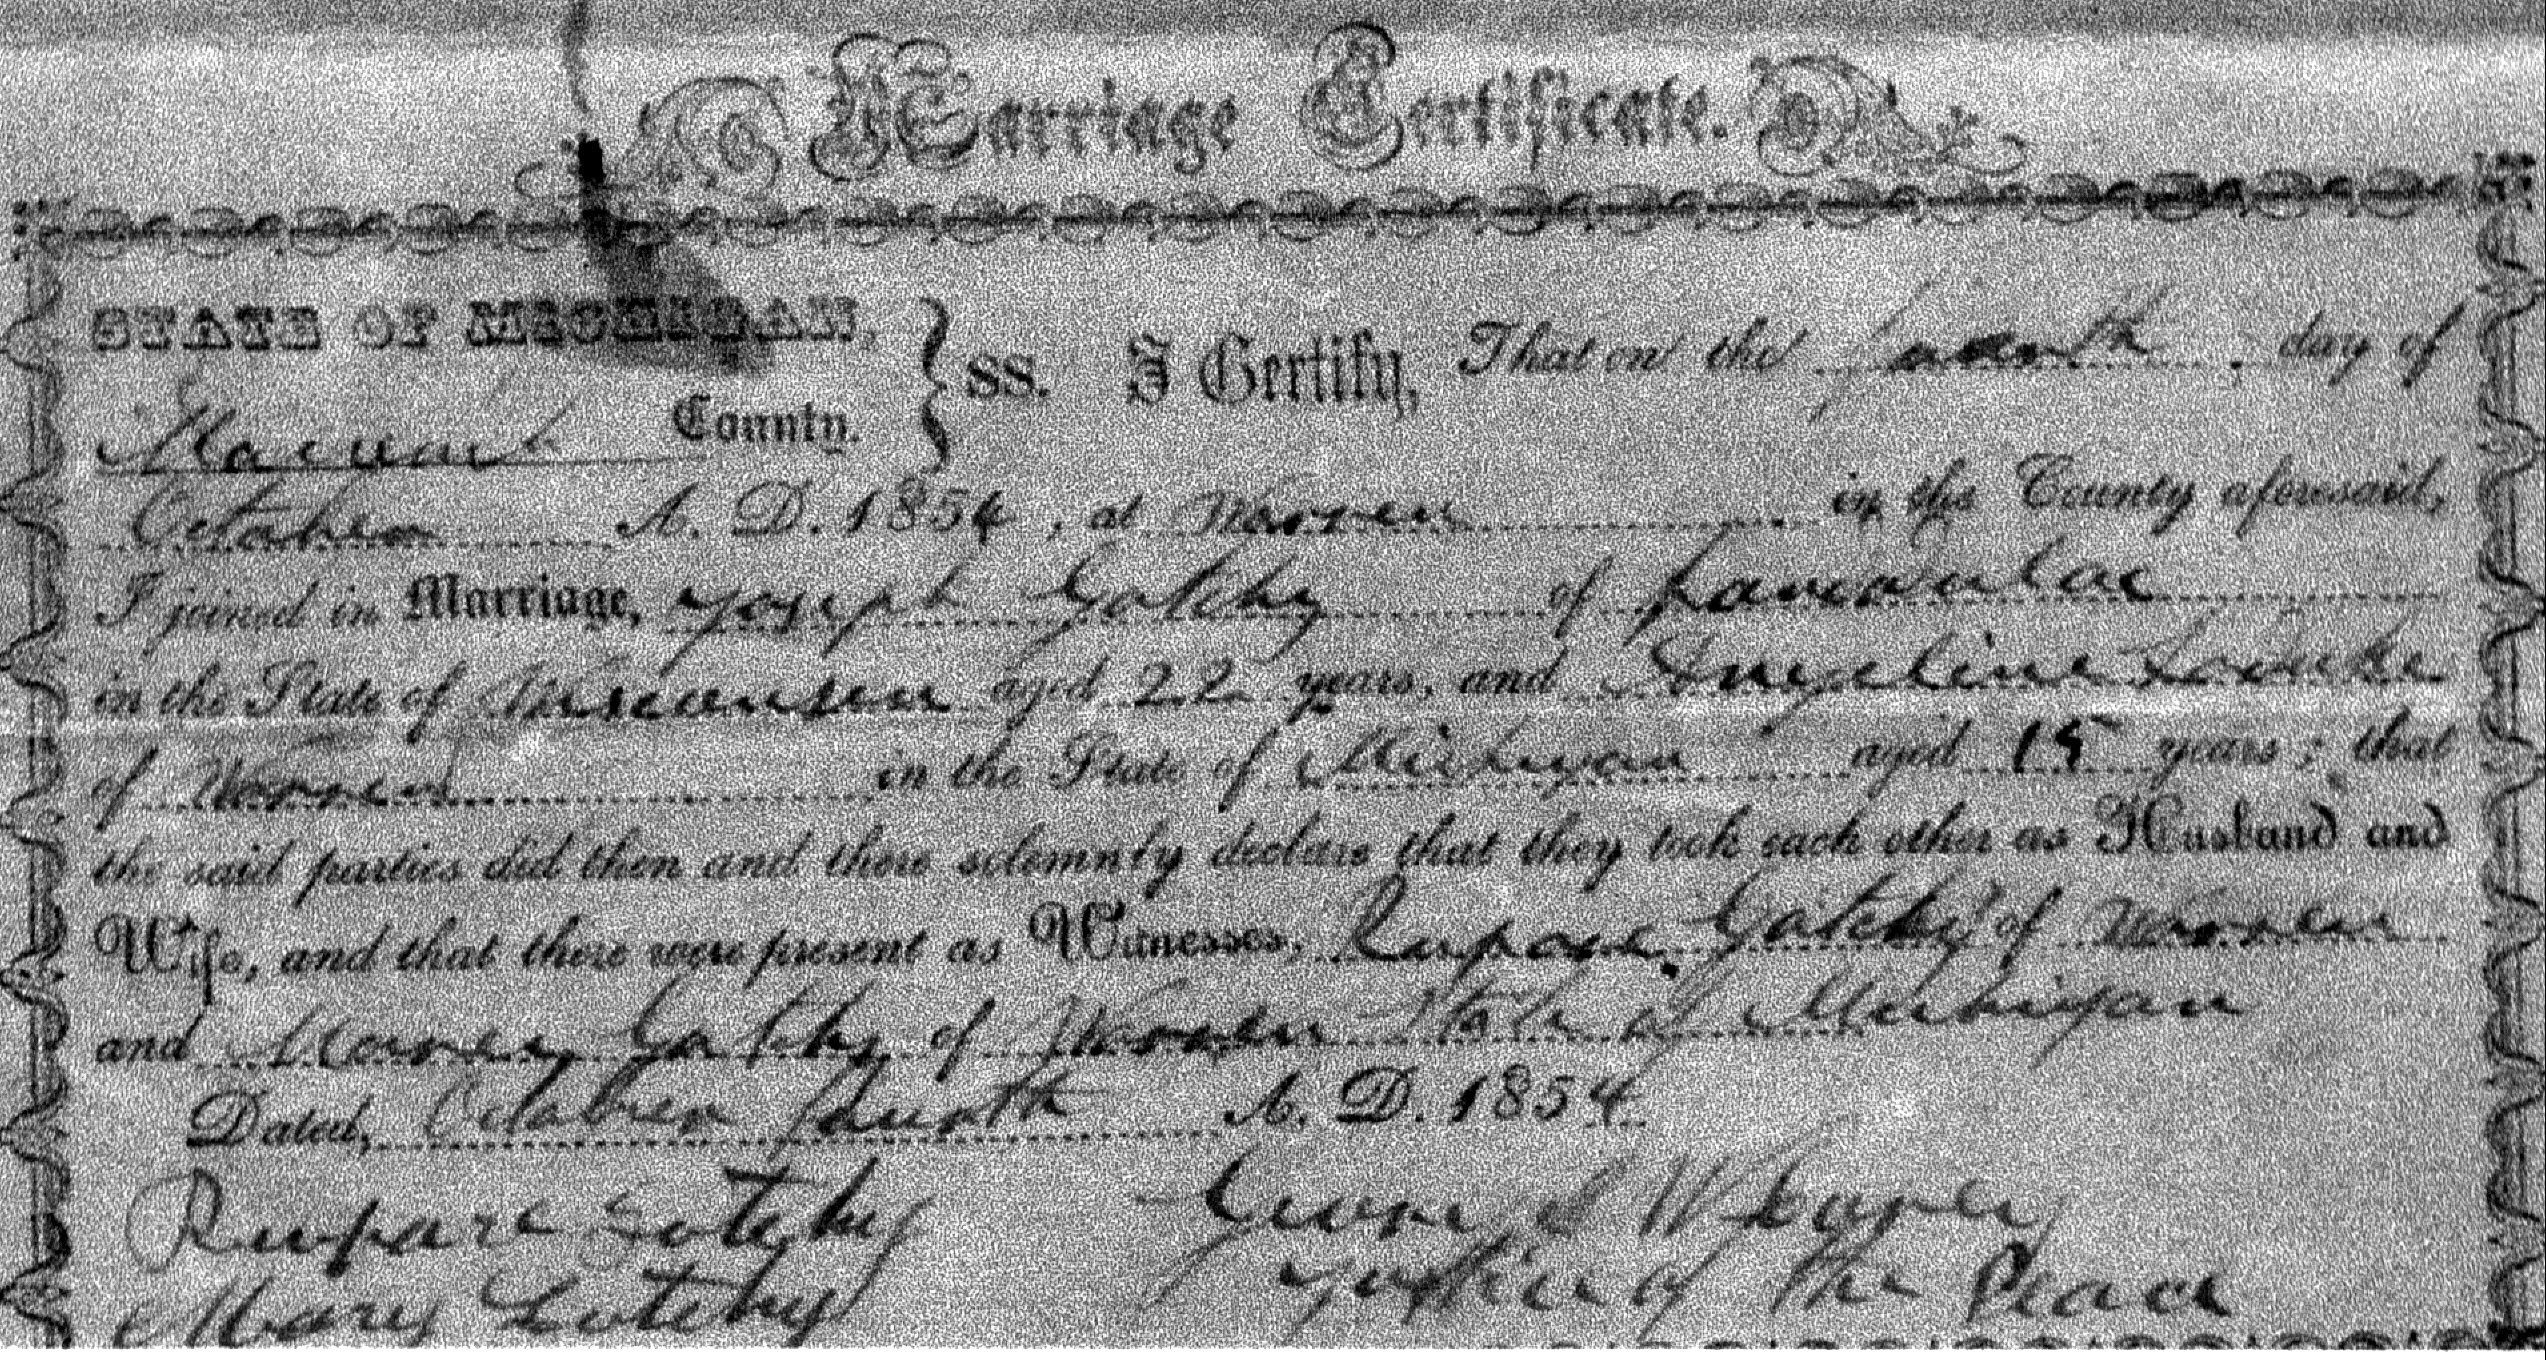 Marriage Certificate.
STATE OF MICHIGAN,
County.
ss. I Certify, That on the fourth day of
October A. D. 1854, at Warren in the County aforesaid,
I joined in Marriage, Joseph Gatchy of
in the State of Wisconsin aged 22 years, and Angeline
of Warren in the State of Michigan aged years; that
the said parties did then and there solemnly declare that they took each other as Husband and
Wife, and that there were present as Witnesses, Gatchy of Warren
and Gatchy of Warren State of Michigan
Dated, October fourth A. D. 1854
Mary
Justice of the Peace